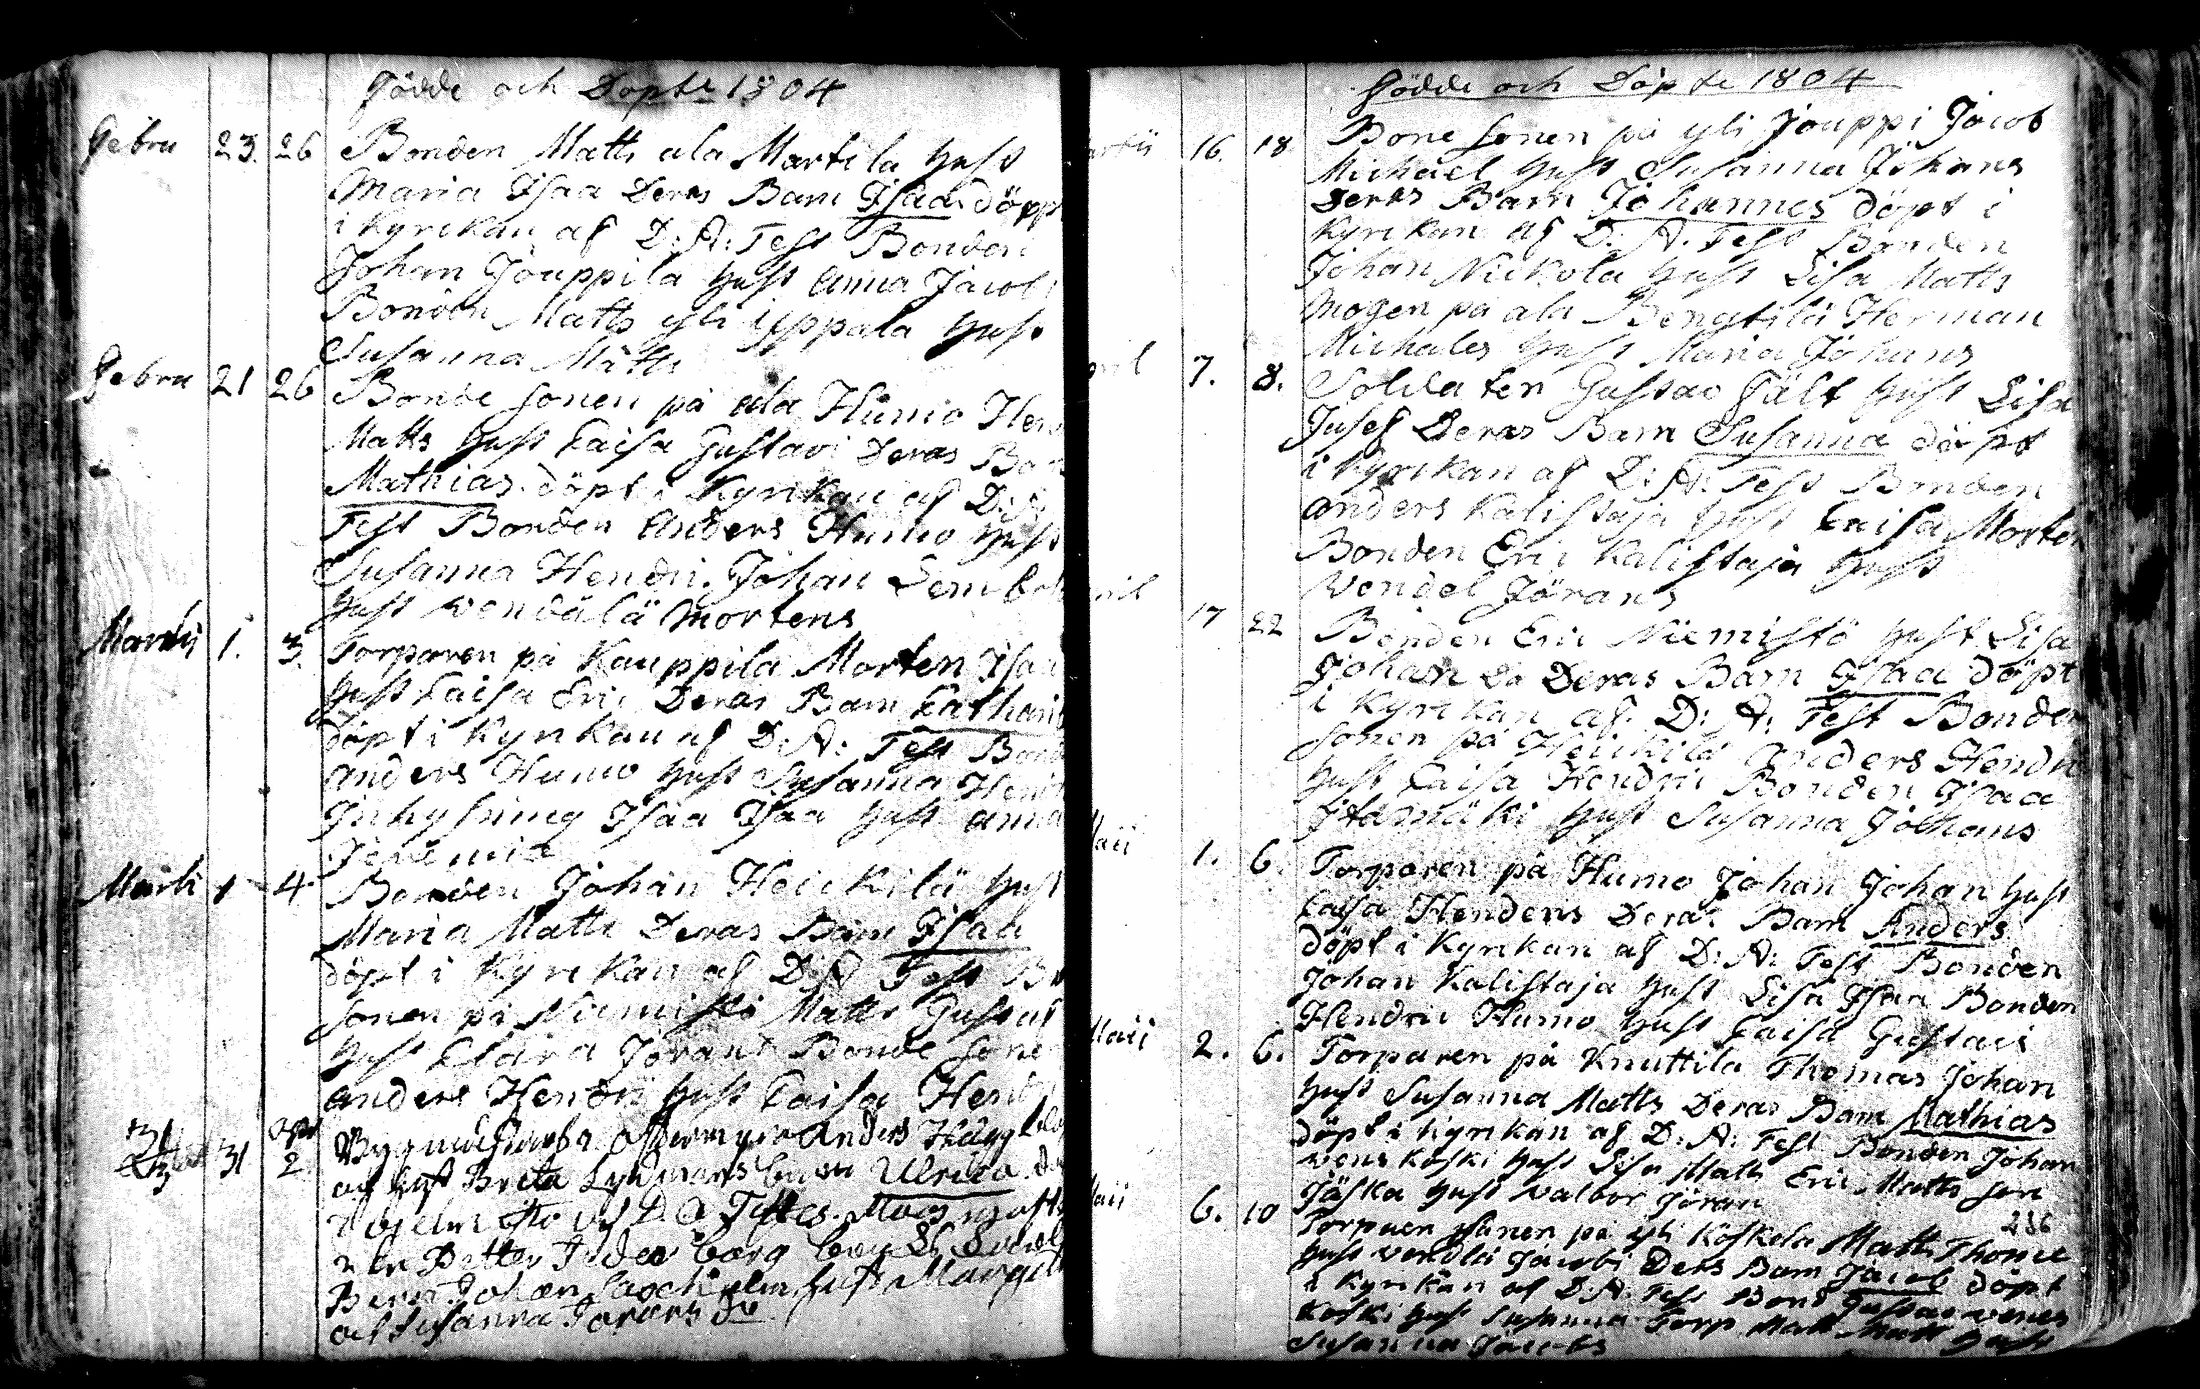 Födde och Döpte 1804
Febru 23. 26 Bonden Matts ala Martila Hust
Maria Isaa Deras Barn Isaac döpt
i Kyrckan af D: A: Test Bonden
Johan Jouppila Hust Anna Jacobs
Bonden Matts yli Uppala Hust
Susanna Matts
Febru 21 26 Bonde sonen på ala Humo Hen
Matts Hust Caisa Gustavi Deras Ba
Mathias döpt i Kyrckan af D: A:
Test Bonden Anders Humo Hust
Susanna Hendri. Johan
Hust Wendälä Mortens
Martii 1. 3. Torparen på Kauppila Morten Isaa
Hust Caisa Eric Deras Barn Catharin
döpt i Kyrckan af D: A: Test Bond
Anders Humo Hust Susanna Hend
Inhysning Isaa Isaa Hust Anna
Jeremia
Marti 1 4 Bonden Johan Heickilä Hust
Maria Matts Deras Barn Isaac
döpt i Kyrckan af D: A Test Bo
sonen på Niemistö Matts Gustaf
Hust Clara Jörans Bonde sone
Anders Hendri Hust Caisa Hend
31 31 Apr 2 Anders Hägg
Hust Brita barn Ulrica
af D. A Testes
Petter berg
Johan Hust Marg
och Susanna Jörans
Födde och Döpte 1804
artii 16. 18 Bone sonen på yli Jouppi Jacob
Michael Hust Susanna Johans
Deras Barn Johannes döpt i
Kyrckan af D: A. Test Bonden
Johan Nickola Hust Lisa Matts
Mogen på ala Bengtila Herman
Michales Hust Maria Johans
pril 7. 8. Soldaten Gustav Fält Hust Lisa
Josef Deras Barn Susanna döpt
i Kyrckan af D: A: Test Bonden
Anders Kalistaja Hust Caisa Morten
Bonden Eric Kalistaja Hust
Wendel Jörans
pril 17 22 Bonden Eric Niemistö Hust Lisa
Johan Deras Barn Isaa döpt
i Kyrckan af D: A: Test Bonde
sonen på Heickilä Anders Hendri
Hust Caisa Hendri Bonden Isaa
Itämäki Hust Susanna Johans
Maii 1. 6. Torparen på Humo Johan Johan Hust
Caisa Henders Deras Barn Anders
döpt i Kyrckan af D: A: Test Bonden
Johan Kalistaja Hust Lisa Isaa Bonden
Hendric Humo Hust Caisa Gustavi
Maii 2. 6. Torparen på Knuttila Thomas Johan
Hust Susanna Matts Deras Barn Mathias
döpt i Kyrckan af D: A: Test Bonden Johan
wens koski Hust Lisa Matts Eric Matts son
Jäska Hust Valbor Jöran
Maii 6. 10 sonen på yli Koskela Matts Thome
236
Hust Wendla Jacobs Ders Barn Jacob döpt
i Kyrckan af D: A: Test Bond Gustav wenes
koski Hust Susanna Torp Matt Matt Hust
Susanna Jacobs